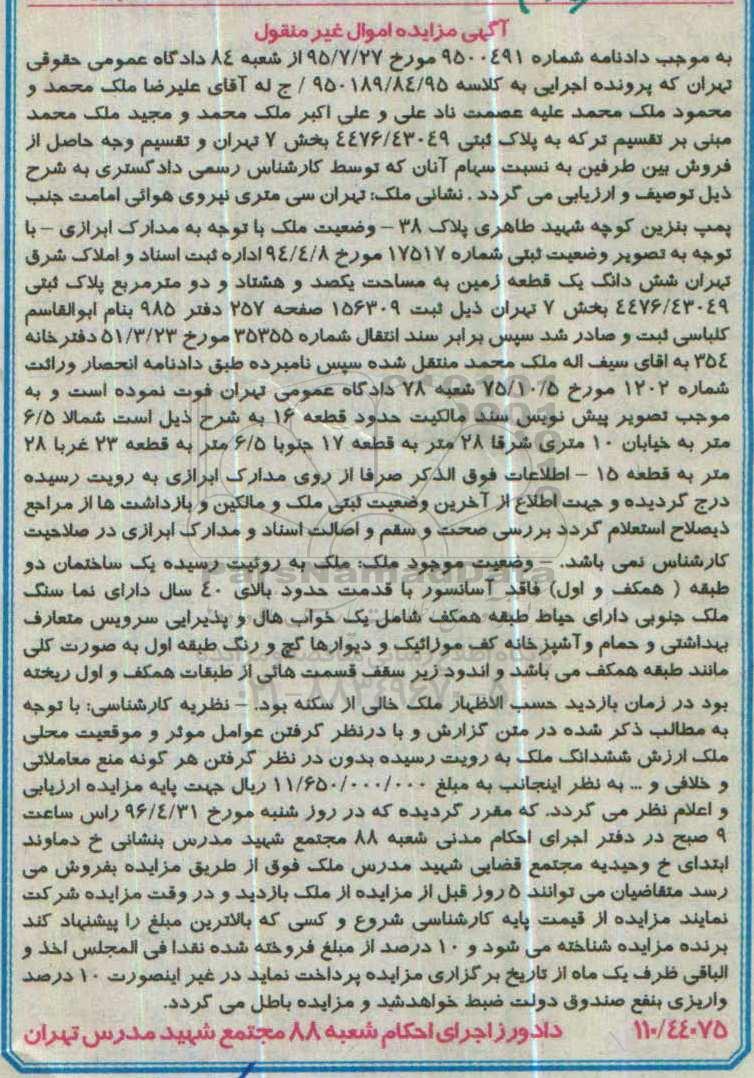 آگهی مزایده اموال غیر منقول
به موجب دادنامه شماره ۹۵۰۰۴۹۱ مورخ ۹۵/۷/۲۷ از شعبه ۸۴ دادگاه عمومی حقوقی
تهران که پرونده اجرایی به کلاسه ۹۵۰۱۸۹/۸۴/۹۵ / ج له آقای علیرضا ملک محمد و
محمود ملک محمد علیه عصمت ناد علی و علی اکبر ملک محمد و مجید ملک محمد
مبنی بر تقسیم ترکه به پلاک ثبتی ۴۴۷۶/۴۳۰۴۹ بخش ۷ تهران و تقسیم وجه حاصل از
فروش بین طرفین به نسبت سهام آنان که توسط کارشناس رسمی دادگستری به شرح
ذیل توصیف و ارزیابی می گردد . نشانی ملک: تهران سی متری نیروی هوائی امامت جنب
پمپ بنزین کوچه شهید طاهری پلاک ۳۸ – وضعیت ملک با توجه به مدارک ابرازی – با
توجه به تصویر وضعیت ثبتی شماره ۱۷۵۱۷ مورخ ۹۴/۴/۸ اداره ثبت اسناد و املاک شرق
تهران شش دانگ یک قطعه زمین به مساحت یکصد و هشتاد و دو مترمربع پلاک ثبتی
۴۴۷۶/۴۳۰۴۹ بخش ۷ تهران ذیل ثبت ۱۵۶۳۰۹ صفحه ۲۵۷ دفتر ۹۸۵ بنام ابوالقاسم
کلباسی ثبت و صادر شد سپس برابر سند انتقال شماره ۳۵۳۵۵ مورخ ۵۱/۳/۲۳ دفترخانه
۳۵۴ به اقای سیف اله ملک محمد منتقل شده سپس نامبرده طبق دادنامه انحصار وراثت
شماره ۱۲۰۲ مورخ ۷۵/۱۰/۵ شعبه ۷۸ دادگاه عمومی تهران فوت نموده است و به
موجب تصویر پیش نویس سند مالکیت حدود قطعه ۱۶ به شرح ذیل است شمالا ۶/۵
متر به خیابان ۱۰ متری شرقا ۲۸ متر به قطعه ۱۷ جنوبا ۶/۵ متر به قطعه ۲۳ غربا ۲۸
متر به قطعه ۱۵ – اطلاعات فوق الذکر صرفا از روی مدارک ابرازی به رویت رسیده
درج گردیده و جهت اطلاع از آخرین وضعیت ثبتی ملک و مالکین و بازداشت ها از مراجع
ذیصلاح استعلام گردد بررسی صحت و سقم و اصالت اسناد و مدارک ابرازی در صلاحیت
کارشناس نمی باشد. – وضعیت موجود ملک: ملک به روئیت رسیده یک ساختمان دو
طبقه ( همکف و اول) فاقد آسانسور با قدمت حدود بالای ۴۰ سال دارای نما سنگ
ملک جنوبی دارای حیاط طبقه همکف شامل یک خواب هال و پذیرایی سرویس متعارف
بهداشتی و حمام و آشپزخانه کف موزائیک و دیوارها گچ و رنگ طبقه اول به صورت کلی
مانند طبقه همکف می باشد و اندود زیر سقف قسمت هائی از طبقات همکف و اول ریخته
بود در زمان بازدید حسب الاظهار ملک خالی از سکنه بود. – نظریه کارشناسی: با توجه
به مطالب ذکر شده در متن گزارش و با درنظر گرفتن عوامل موثر و موقعیت محلی
ملک ارزش ششدانگ ملک به رویت رسیده بدون در نظر گرفتن هر گونه منع معاملاتی
و خلافی و ... به نظر اینجانب به مبلغ ۱۱/۶۵۰/۰۰۰/۰۰۰ ریال جهت پایه مزایده ارزیابی
و اعلام نظر می گردد. که مقرر گردیده که در روز شنبه مورخ ۹۶/۴/۳۱ راس ساعت
۹ صبح در دفتر اجرای احکام مدنی شعبه ۸۸ مجتمع شهید مدرس بنشانی خ دماوند
ابتدای خ وحیدیه مجتمع قضایی شهید مدرس ملک فوق از طریق مزایده بفروش می
رسد متقاضیان می توانند ۵ روز قبل از مزایده از ملک بازدید و در وقت مزایده شرکت
نمایند مزایده از قیمت پایه کارشناسی شروع و کسی که بالاترین مبلغ را پیشنهاد کند
برنده مزایده شناخته می شود و ۱۰ درصد از مبلغ فروخته شده نقدا فی المجلس اخذ و
الباقی ظرف یک ماه از تاریخ برگزاری مزایده پرداخت نماید در غیر اینصورت ۱۰ درصد
واریزی بنفع صندوق دولت ضبط خواهدشد و مزایده باطل می گردد.
۱۱۰/۴۴۰۷۵ دادورز اجرای احکام شعبه ۸۸ مجتمع شهید مدرس تهران